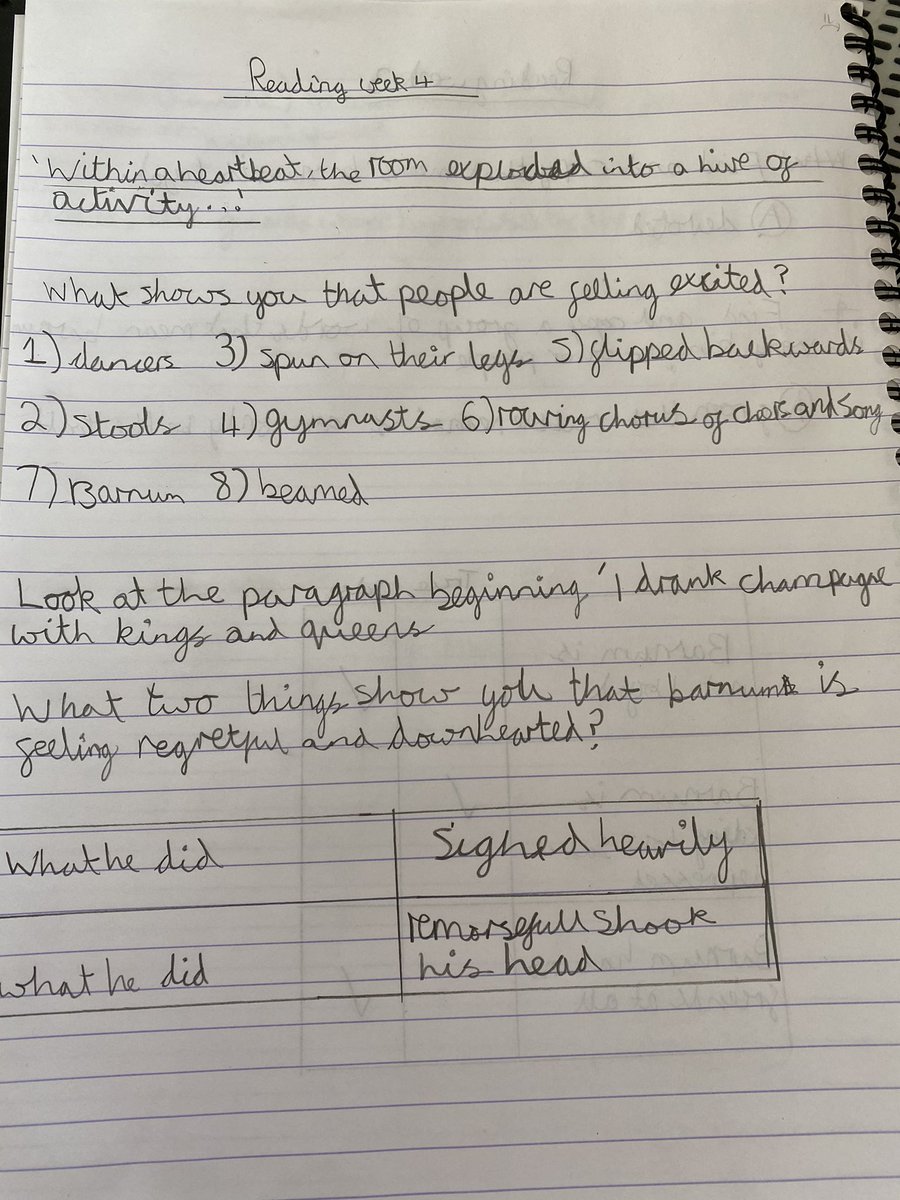 Reading week 4
'Within a heartbeat, the room exploded into a hive of
activity...'
What shows you that people are felling excited?
1) dancers 3) spun on their legs 5) flipped backwards
2) stools 4) gymnasts 6) rouring chorus of chers and song
7) Barnum 8) beamed
Look at the paragraph beginning 'I drank champagne
with kings and queens
What two things show you that barnum is
feeling regretful and downhearted?
What he did
Sighed hearily
what he did
remorsefull shook
his head